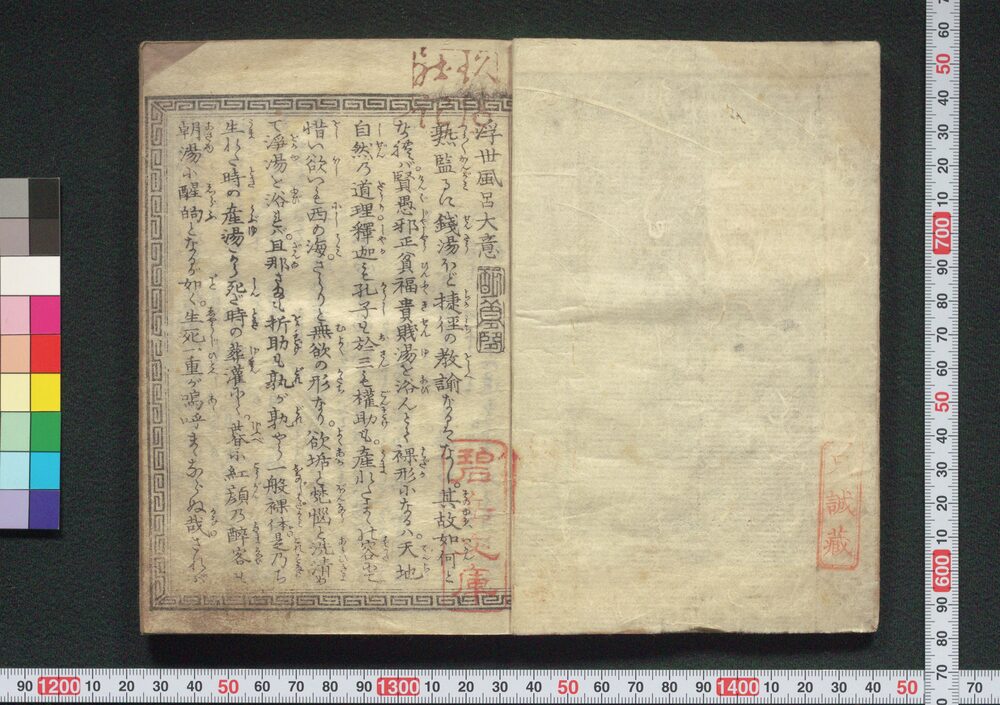 浮世風呂大意
熟監るに錢湯ほど捷径の教諭なるはなし。其故如何と
なれば賢愚邪正貧福貴賤湯を浴んとて裸形になるハ天地
自然の道理釋迦も孔子も於三も權助も産れたまゝの容にて
惜い欲いも西の海。さらりと無欲の形なり。欲垢と梵悩と洗清め
て浄湯を浴れば旦那さまも折助も孰が孰やら一般裸体是乃ち
生れた時の産湯から死だ時の葬灌にて暮に紅顔の醉客も
朝湯に醒的となるが如く生死一重が嗚呼まゝならぬ哉されバ
碧
文庫
誠藏